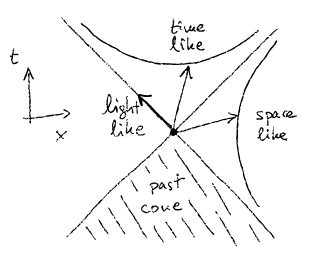 time
like
t
light
like
x
space
like
past
cone